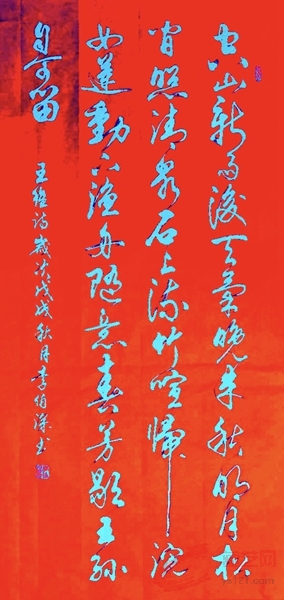 空山新雨後天氣晚来秋明月松
间照清泉石上流竹喧歸浣
女蓮動下漁舟随意春芳歇王孫
自可留
王维诗歲次戊戌秋月李伯书